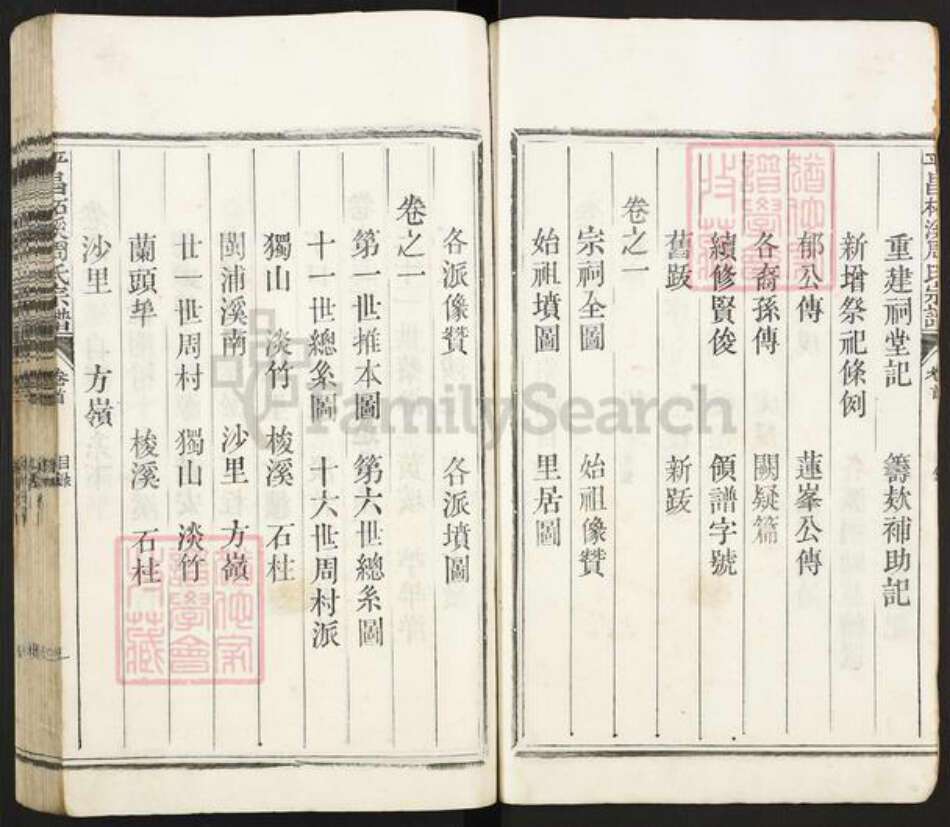 重建祠堂記　籌欵補助記
新增祭祀條例
郁公傳　蓮峯公傳
各裔孫傳　闕疑篇
續修賢俊　領譜字號
舊跋　新跋
卷之一
宗祠全圖　始祖像贊
始祖墳圖　里居圖
各派像贊　各派墳圖
卷之一
第一世推本圖　第六世總系圖
十一世總系圖　十六世周村派
獨山　淡竹　梭溪　石柱
閩浦溪南　沙里　方嶺
廿一世周村　獨山　淡竹
蘭頭　梭溪　石柱
沙里　方嶺
周氏宗譜
卷首
目錄
FamilySearch